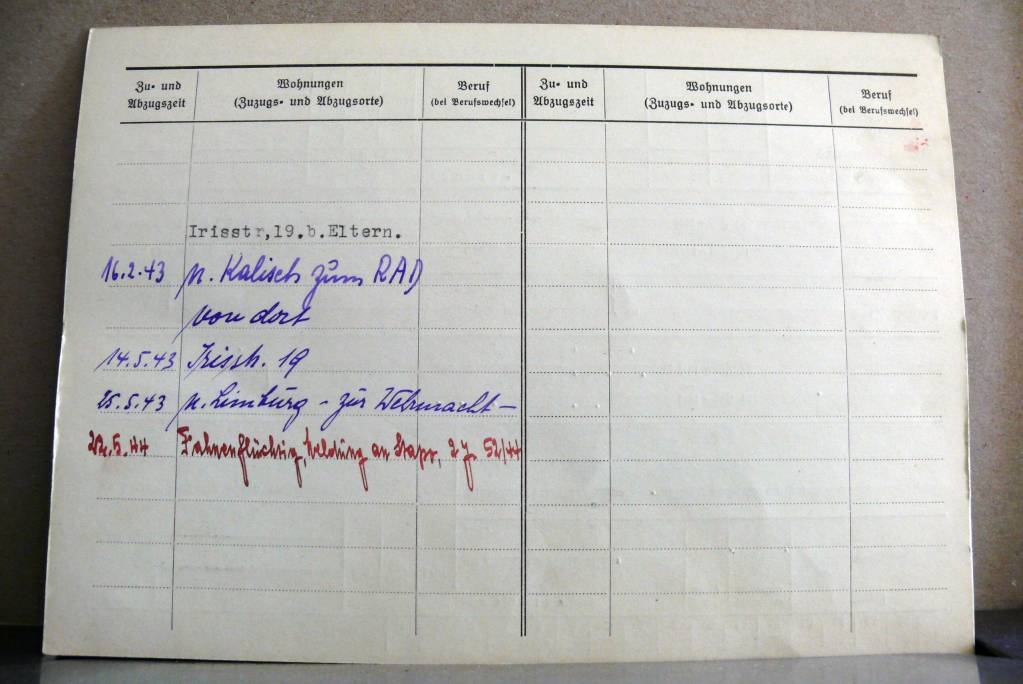 Zu- und Abzugszeit
Wohnungen
(Zuzugs- und Abzugsorte)
Beruf
(bei Berufswechsel)
Zu- und Abzugszeit
Wohnungen
(Zuzugs- und Abzugsorte)
Beruf
(bei Berufswechsel)
Irisstr,19.b.Eltern.
16.2.43 n. Kalisch zum RAD
von dort
14.5.43 Irisstr. 19
25.5.43 n. Limburg - zur Wehrmacht -
22.5.44 Fahnenflüchtig, Meldung an Stapo, 2 J 52/44